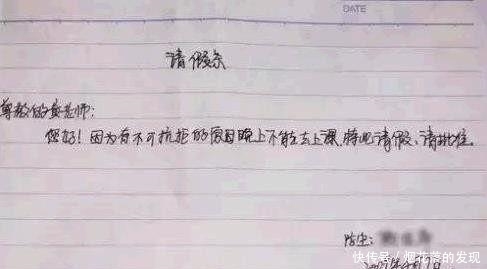 DATE
请假条
尊敬的黄老师:
您好!因为有不可抗拒的原因晚上不能去上课,特此请假、请批准
快传号 / 烟花落的发现